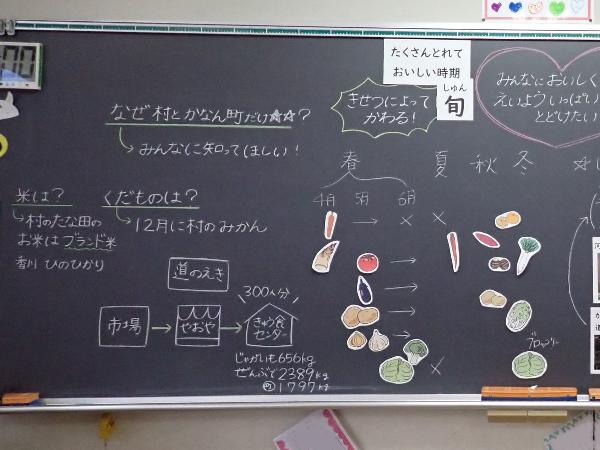 たくさんとれて
おいしい時期
しゅん
旬
きせつによって
かわる！
みんなにおいしく
えいよういっぱい
とどけたい
なぜ村とかなん町だけ☆☆？
みんなに知ってほしい！
米は？
村のたな田の
お米はブランド米
香川 ひのひかり
くだものは？
12月に村のみかん
道のえき
市場
やおや
300人分
きゅう食
センター
じゃがいも656kg
ぜんぶで2389kg
1797kg
春
夏
秋
冬
4月
5月
6月
ブロッコリー